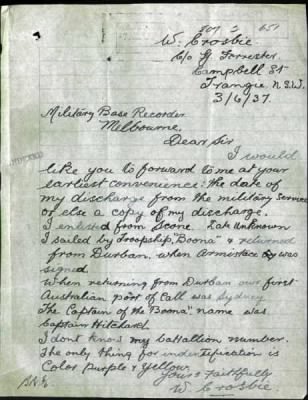 W. Crosbie
C/o H. Forrester
Campbell St
Trangie. N.S.W.
3/6/37.
Military Base Recorder
Melbourne,
Dear Sir
I would
like you to forward to me at your
earliest convenience: the date of
my discharge from the military Services
or else a copy of my discharge.
I enlisted from Scone. Date unknown
I sailed by Troopship "Boona" & returned
from Durban. when Armistace was
signed
When returning from Durban our first
Australian port of Call was Sydney
The Captain of the "Boona". name was
Captain Hitchard.
I dont know my battallion number.
The only thing for indentification is
Color purple & yellow.
Yours Faithfully
W. Crosbie